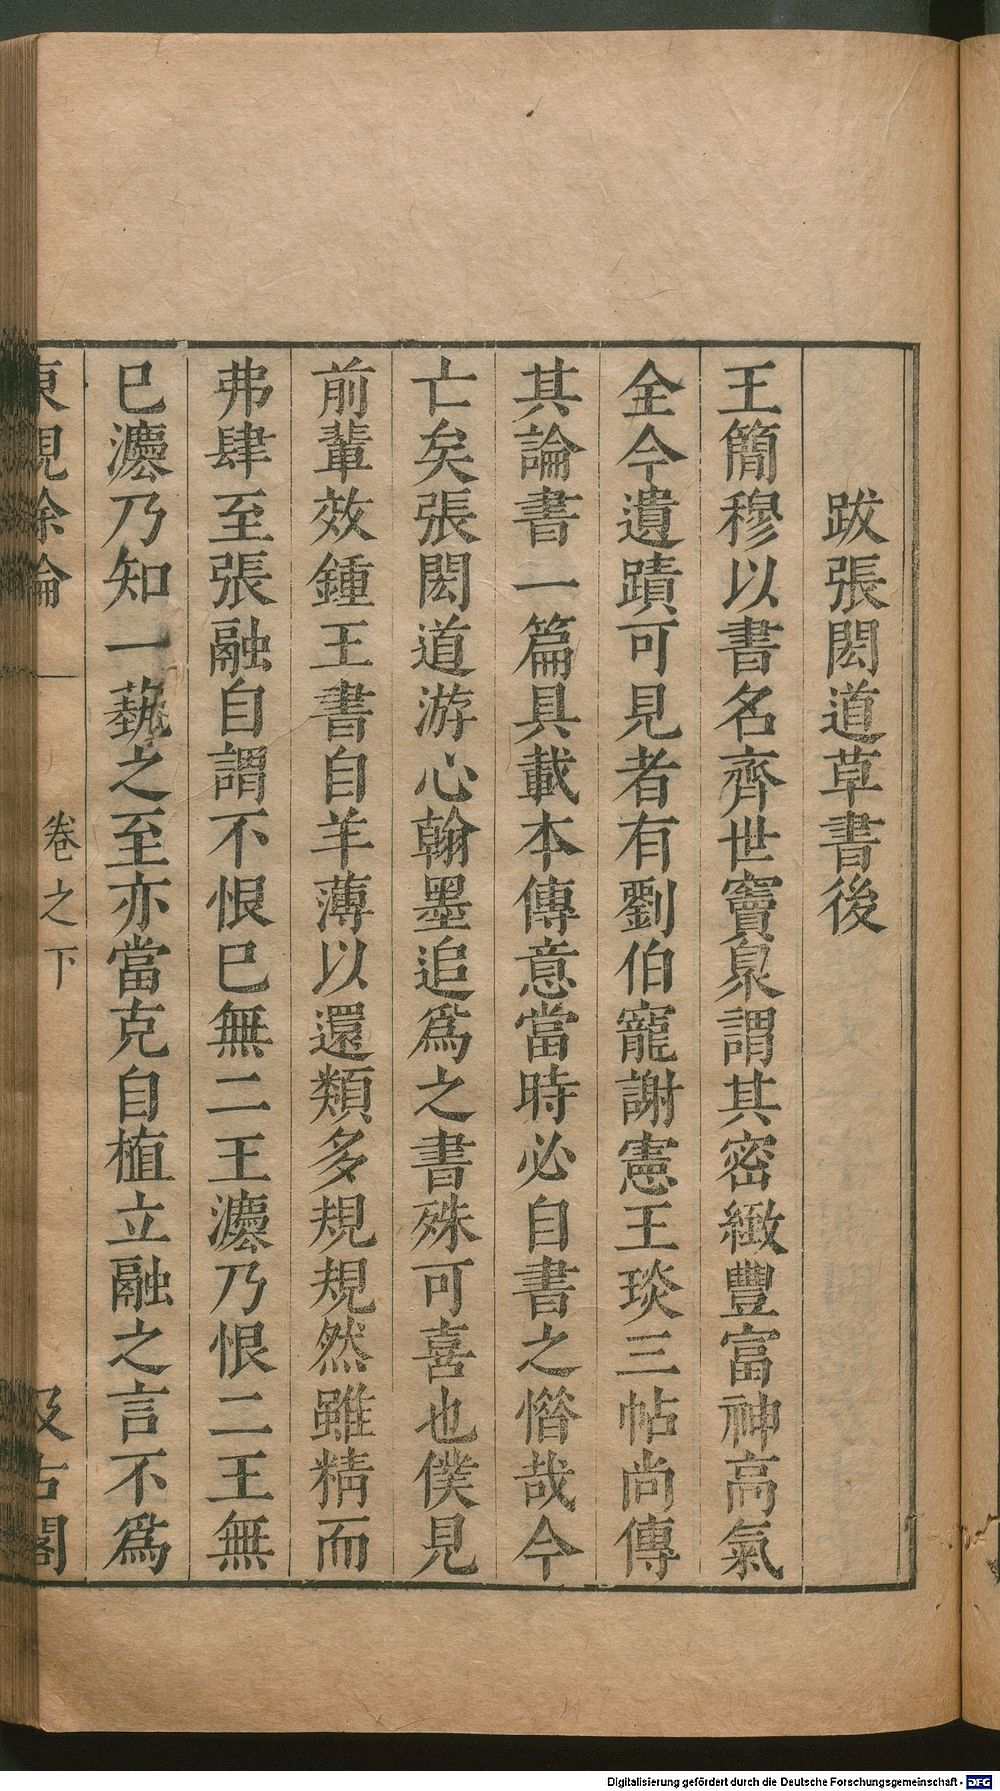 跋張閎道草書後
王簡穆以書名齊世竇臮謂其密緻豐富神高氣
全今遺蹟可見者有劉伯寵謝憲王琰三帖尚傳
其論書一篇具載本傳意當時必自書之惜哉今
亡矣張閎道游心翰墨追爲之書殊可喜也僕見
前輩效鍾王書自羊薄以還類多規規然雖精而
弗肆至張融自謂不恨已無二王灋乃恨二王無
已灋乃知一藝之至亦當克自植立融之言不爲
東觀餘論 卷之下 汲古閣
Digitalisierung gefördert durch die Deutsche Forschungsgemeinschaft - DFG